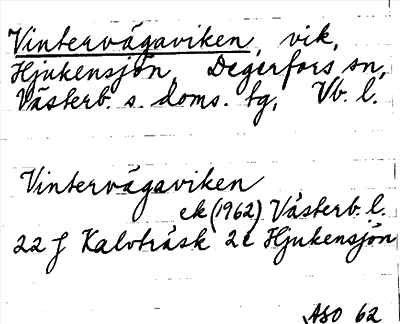 Vintervägaviken, vik,
Hjukensjön, Degerfors sn,
Västerb. s. doms. tg, Vb. l.
Vintervägaviken
ek (1962) Västerb. l.
22 f Kalvträsk 2c Hjukensjön
ASO 62